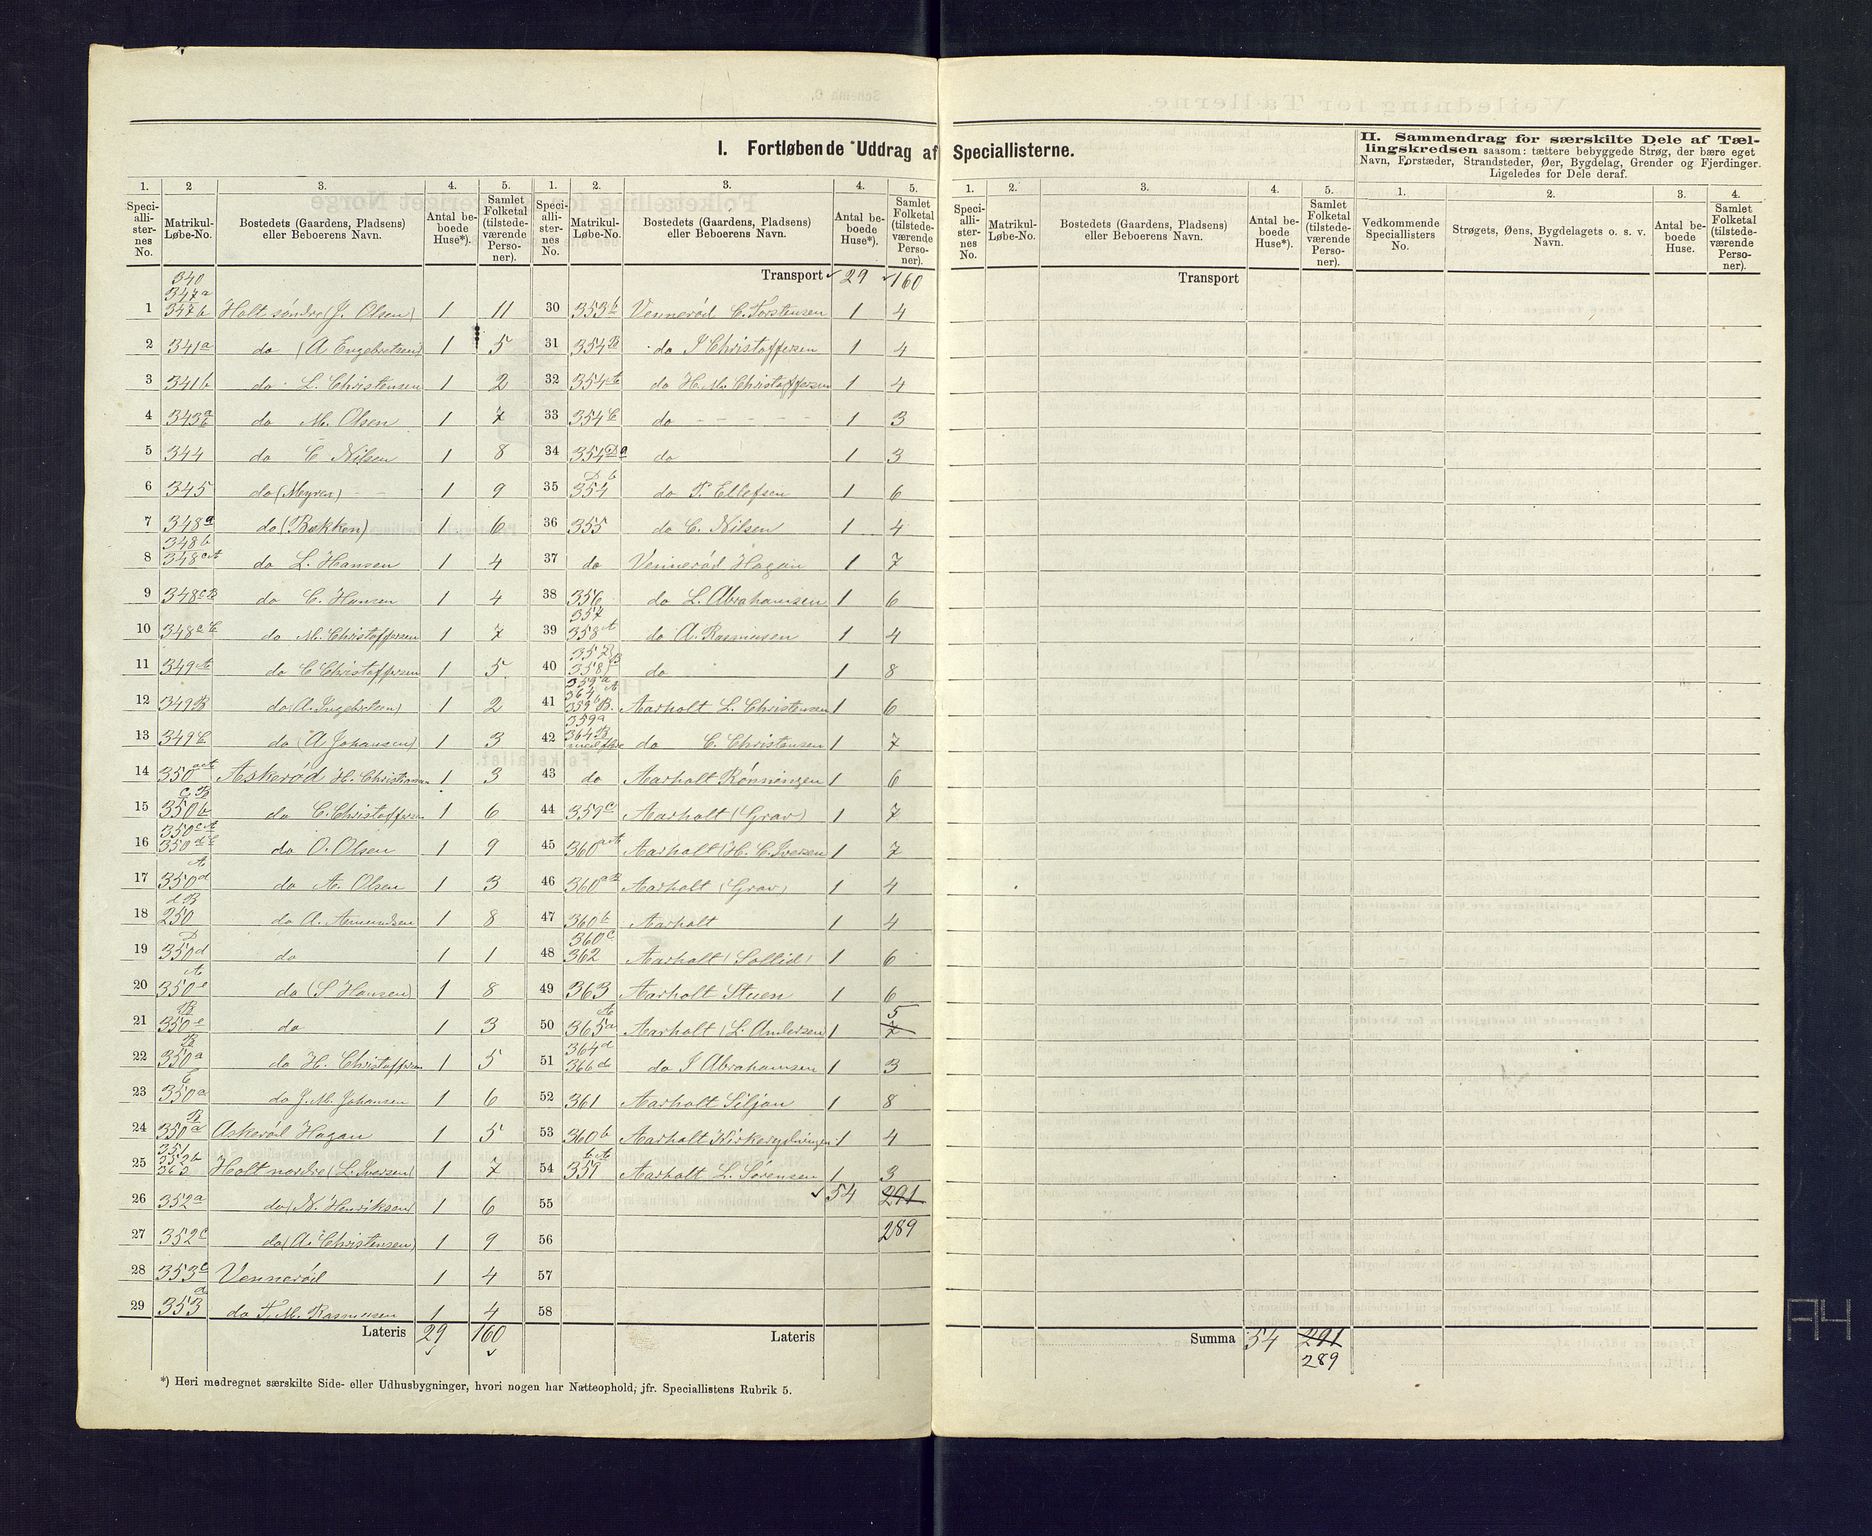 I. Fortløbende Uddrag af Speciallisterne.
II. Sammendrag for særskilte Dele af Tællingskredsen saasom: tættere bebyggede Strøg, der bære eget Navn, Forstæder, Strandsteder, Øer, Bygdelag, Grender og Fjerdinger. Ligeledes for Dele deraf.
1. 2 3. 4. 5. 1. 2. 3. 4. 5. 1. 2. 3. 4. 5. 1. 2. 3. 4.
Speciallisternes No. Matrikul-Løbe-No. Bostedets (Gaardens, Pladsens) eller Beboerens Navn. Antal beboede Huse*). Samlet Folketal (tilstedeværende Personer).
Speciallisternes No. Matrikul-Løbe-No. Bostedets (Gaardens, Pladsens) eller Beboerens Navn. Antal beboede Huse*). Samlet Folketal (tilstedeværende Personer).
Speciallisternes No. Matrikul-Løbe-No. Bostedets (Gaardens, Pladsens) eller Beboerens Navn. Antal beboede Huse*). Samlet Folketal (tilstedeværende Personer).
Vedkommende Speciallisters No. Strøgets, Øens, Bygdelagets o. s. v. Navn. Antal beboede Huse. Samlet Folketal (tilstedeværende Personer).
1 340 347a 347b Holt søndre (J. Olsen) 1 11
2 341a do (A Engebretsen) 1 5
3 341b do L. Christensen 1 2
4 343a b do M. Olsen 1 7
5 344 do C Nilsen 1 8
6 345 do (Myren) 1 9
7 348a do (Bakken) 1 6
8 348b 348cA do L. Hansen 1 4
9 348cB do C. Hansen 1 4
10 348cC do M. Christoffersen 1 7
11 349A do C Christoffersen 1 5
12 349B do (A. Ingebretsen) 1 2
13 349C do (A Johansen) 1 3
14 350aA Askerød H. Christiansen 1 3
15 cB 350b do C. Christoffersen 1 6
16 350cA 350dC do O. Olsen 1 9
17 A 350d do A. Olsen 1 3
18 dB 250 do A. Amundsen 1 8
19 D 350d do 1 1
20 A 350e do (S Hansen) 1 8
21 B 350e do 1 3
22 B 350a do H. Christoffersen 1 5
23 C 350a do J. M. Johansen 1 6
24 B 350a Askerød Hagan 1 5
25 351 352b 363 Holt nordre (L. Iversen) 1 7
26 352a do (N. Henriksen) 1 6
27 352c do (A. Christensen) 1 9
28 353c Vennerød 1 4
29 353a do T. M. Rasmusen 1 4
Lateris 29 160
Transport 29 160
30 353b Vennerød C. Torstensen 1 4
31 354B do I Christoffersen 1 4
32 354A do H. M. Christoffersen 1 4
33 354C do - - - - 1 3
34 354Da do 1 3
35 D b 354 do T. Ellefsen 1 6
36 355 do C. Nilsen 1 4
37 do Vennerød Hagan 1 7
38 356 do L. Abrahamsen 1 6
39 357 358A do A. Rasmusen 1 4
40 357 358 B do 1 8
41 359a 364A 359b B. Aarholt L. Christensen 1 6
42 359a 364B med flere do C. Christensen 1 7
43 do Aarholt Rønningen 1 6
44 359c Aarholt (Grav) 1 7
45 360aA Aarholt (H. C. Iversen 1 7
46 360aB Aarholt (Grav) 1 4
47 360b Aarholt 1 4
48 360c 362 Aarholt (Soltid) 1 6
49 363 Aarholt Stuen 1 6
50 A 365a Aarholt (L. Andersen 1 7 5
51 364d 366d do I Abrahamsen 1 3
52 361 Aarholt Siljan 1 8
53 360b Aarholt Kirkerydningen 1 4
54 bA 359 Aarholt L. Sørensen 1 3
55 54 291
56 289
57
58
Lateris
Transport
Summa 54 291
289
*) Heri medregnet særskilte Side- eller Udhusbygninger, hvori nogen har Natteophold; jfr. Speciallistens Rubrik 5.
A4